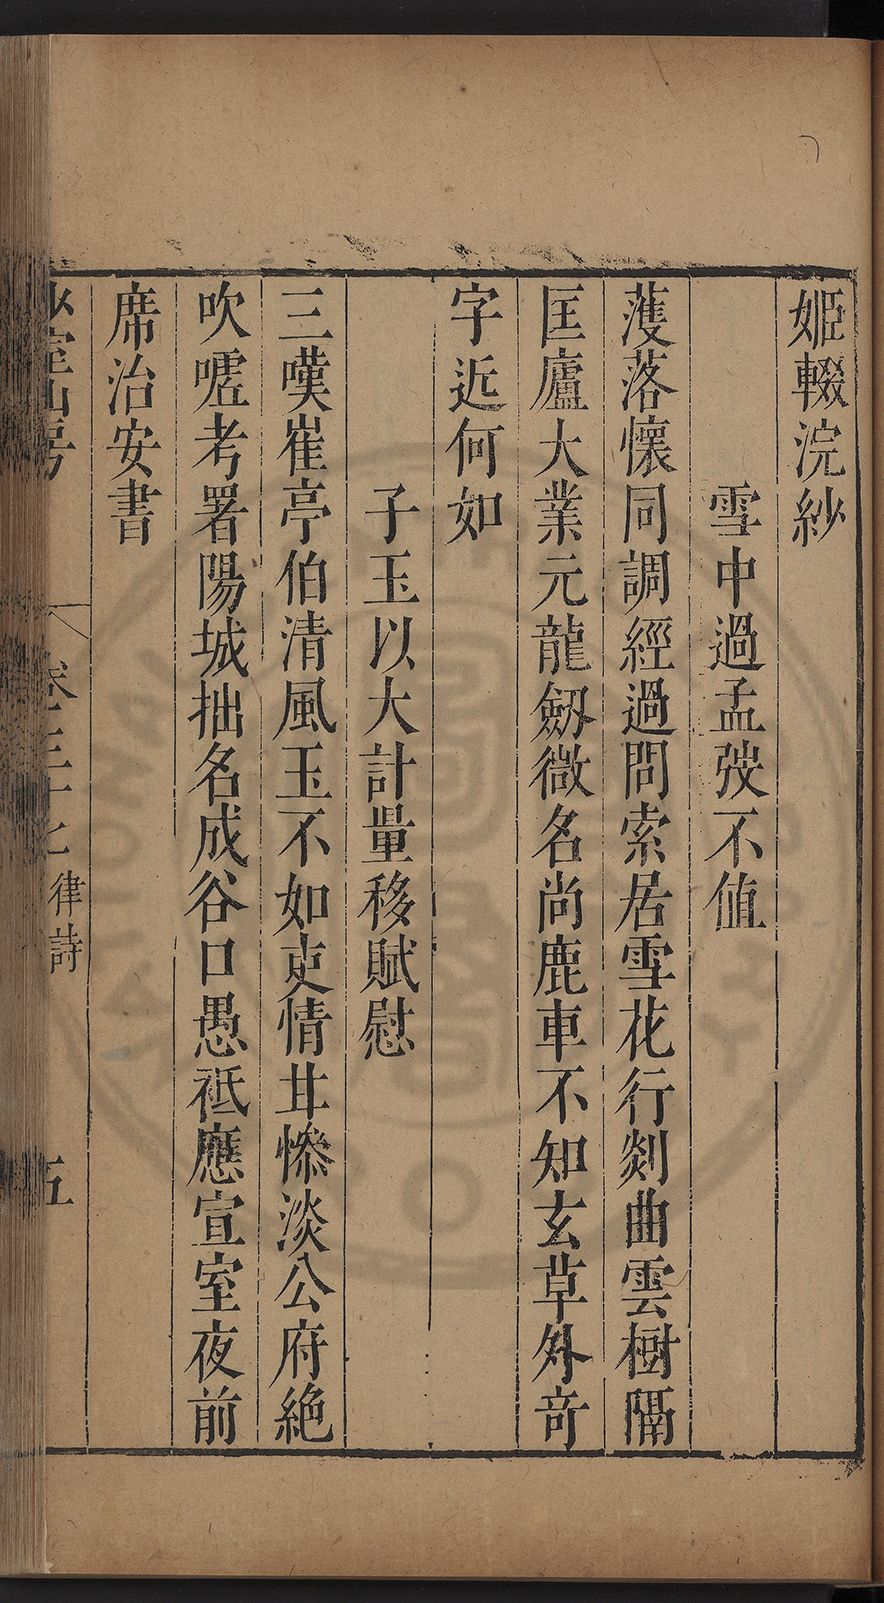 姬輟浣紗
雪中過孟弢不值
濩落懷同調經過問索居雪花行剡曲雲樹隔
匡廬大業元龍劒微名尚鹿車不知玄草外奇
字近何如
子玉以大計量移賦慰
三嘆崔亭伯清風玉不如吏情甘慘淡公府絶
吹噓考署陽城拙名成谷口愚秪應宣室夜前
席治安書
室山房
卷三十七
律詩
五